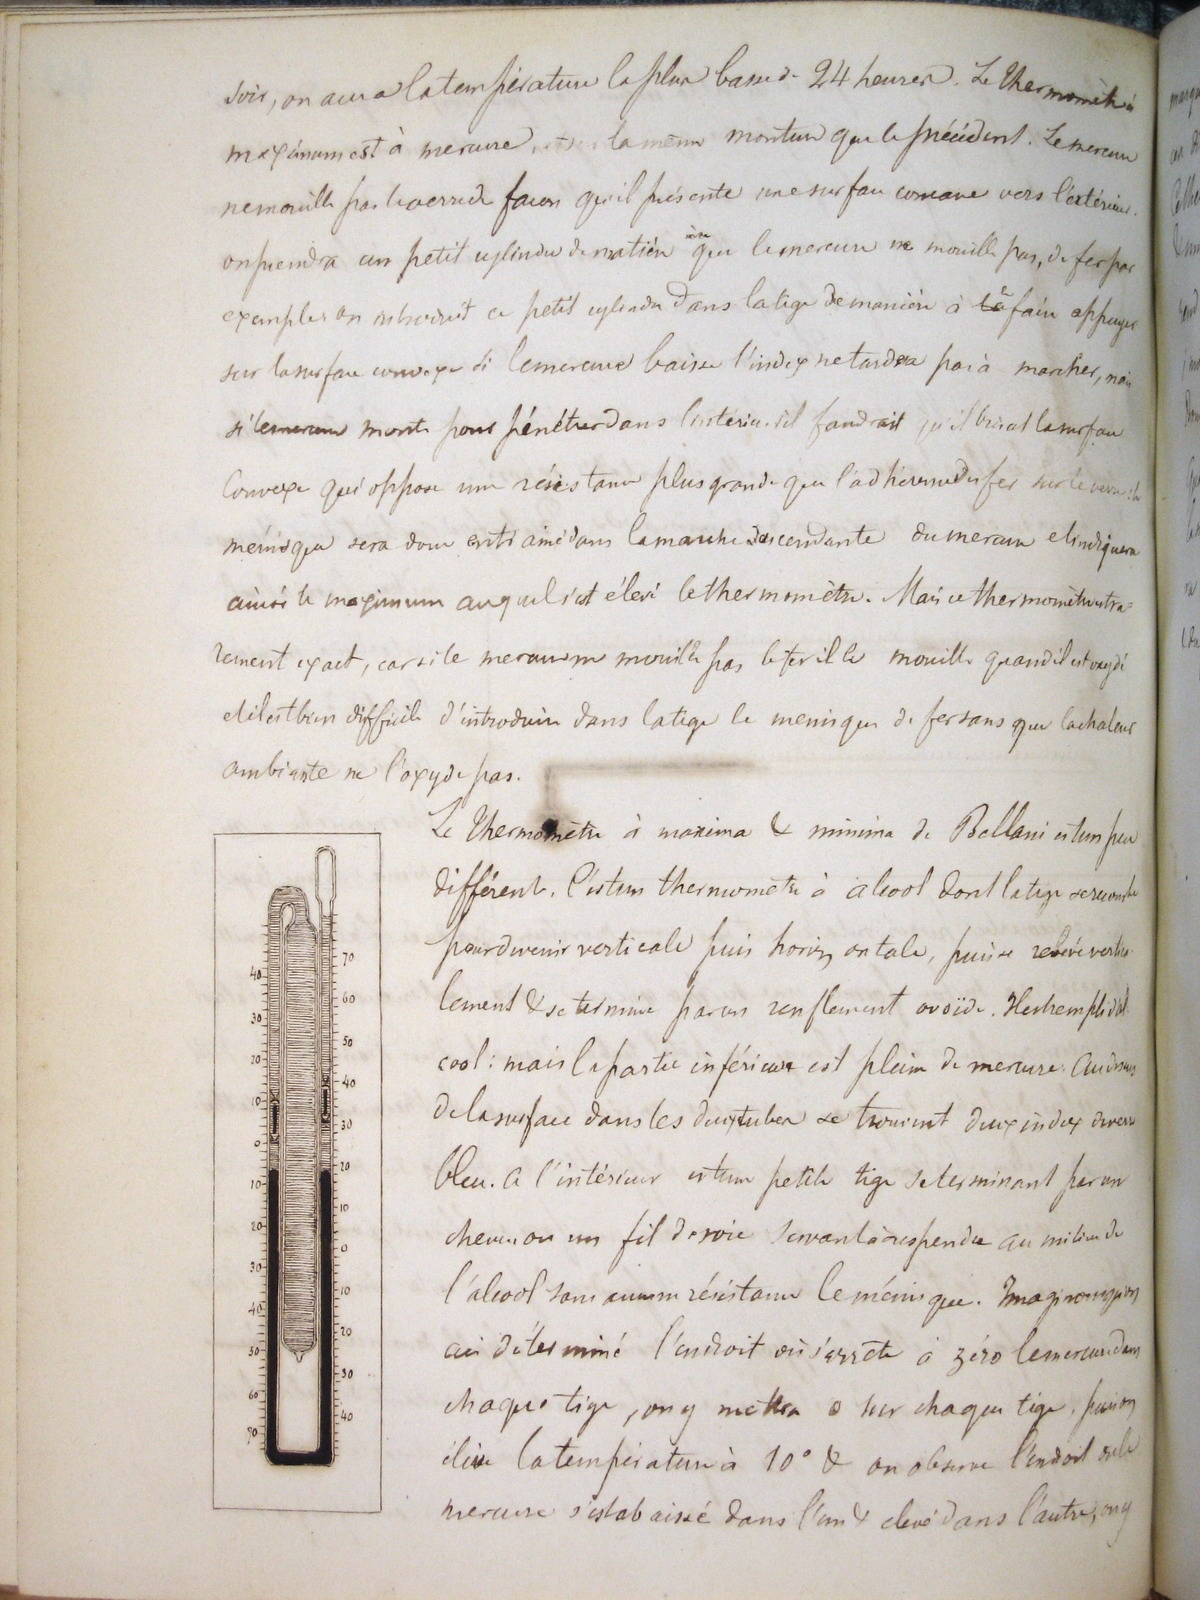 soir, on aura la température la plus basse de 24 heures. Le thermomètre à
maximum est à mercure, la même monture que le précédent. Le mercure
ne mouille pas le verre de façon qu'il présente une surface convexe vers l'extérieur.
on prendra un petit cylindre de matière que le mercure ne mouille pas, de fer par
exemple, on introduit ce petit cylindre dans la tige de manière à le faire appuyer
sur la surface convexe si le mercure baisse l'index ne tardera pas à marcher, mais
si le mercure monte pour pénétrer dans l'intérieur il faudrait qu'il brisât la surface
Convexe qui oppose une résistance plus grande que l'adhérence du fer sur le verre; le
ménisque sera donc entrainé dans la marche descendante du mercure et indiquera
ainsi le maximum auquel s'est élevé le thermomètre. Mais ce thermomètre est ra=
rement exact, car si le mercure ne mouille pas le fer il le mouille quand il est oxydé
et il est bien difficile d'introduire dans la tige le menisque de fer sans que la chaleur
ambiante ne l'oxyde pas.
Le thermomètre à maxima & minima de Bellani est un peu
différent. C'est un thermomètre à alcool dont la tige se recourbe
pour devenir verticale puis horizontale, puis se relève vertica
lement & se termine par un renflement ovoïde. Il est rempli d'al
cool: mais la partie inférieure est pleine de mercure. Au dessus
de la surface dans les deux tubes se trouvent deux index de verre
bleu. A l'intérieur est une petite tige se terminant par un
cheveu ou un fil de soie servant à suspendre au milieu de
l'alcool sans aucune résistance le ménisque. Imaginons qu'on
ai déterminé l'endroit où s'arrête à zéro le mercure dans
chaque tige, on y mettra 0 sur chaque tige, puis on
élève la température à 10° & on observe l'endroit où le
mercure s'est abaissé dans l'un & élevé dans l'autre, on y
40
30
20
10
0
10
20
30
40
50
60
70
70
60
50
40
30
20
10
0
10
20
30
40